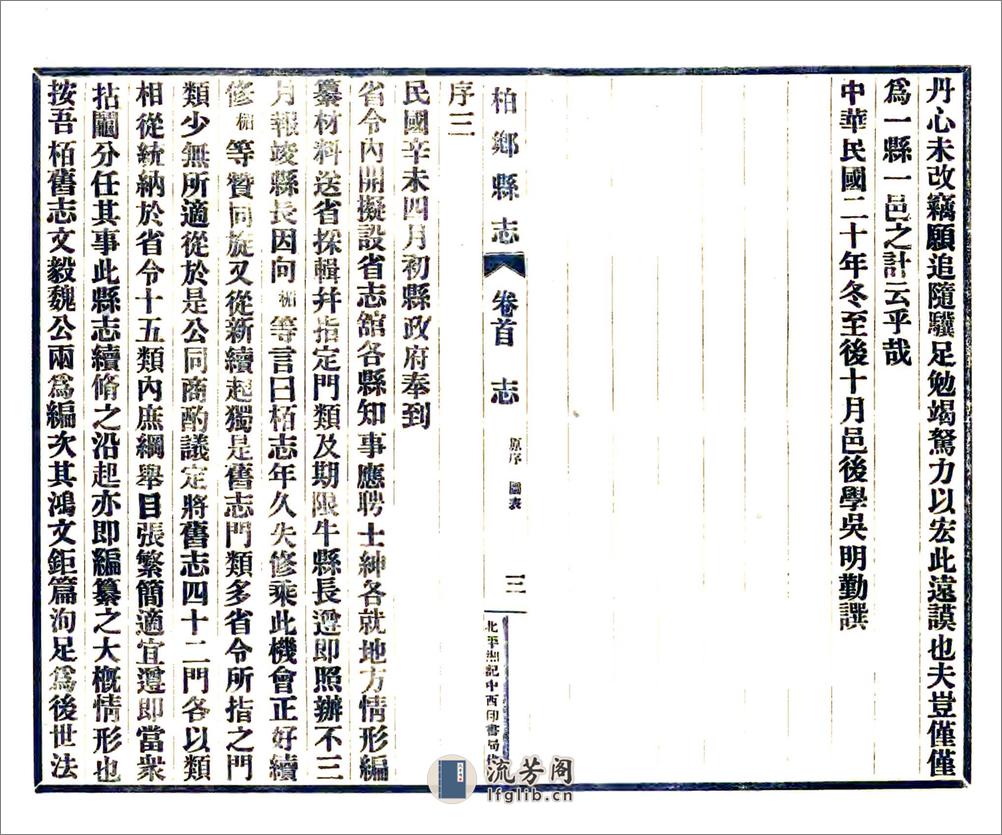 丹心未改竊願追隨驥足勉竭駑力以宏此遠謨也夫豈僅僅
爲一縣一邑之計云乎哉
中華民國二十年冬至後十月邑後學吳明勤譔
柏鄉縣志 卷首 志 原序 圖表 三
序三
民國辛未四月初縣政府奉到
省令內開擬設省志舘各縣知事應聘士紳各就地方情形編
纂材料送省採輯幷指定門類及期限牛縣長遵即照辦不三
月報竣縣長因向 等言曰栢志年久失修乘此機會正好續
修 等贊同旋又從新續起獨是舊志門類多省令所指之門
類少無所適從於是公同商酌議定將舊志四十二門各以類
相從統納於省令十五類內庶綱舉目張繁簡適宜遵即當衆
拈鬮分任其事此縣志續脩之沿起亦即編纂之大槪情形也
按吾栢舊志文毅魏公兩爲編次其鴻文鉅篇洵足爲後世法
流芳阁
lfglib.cn